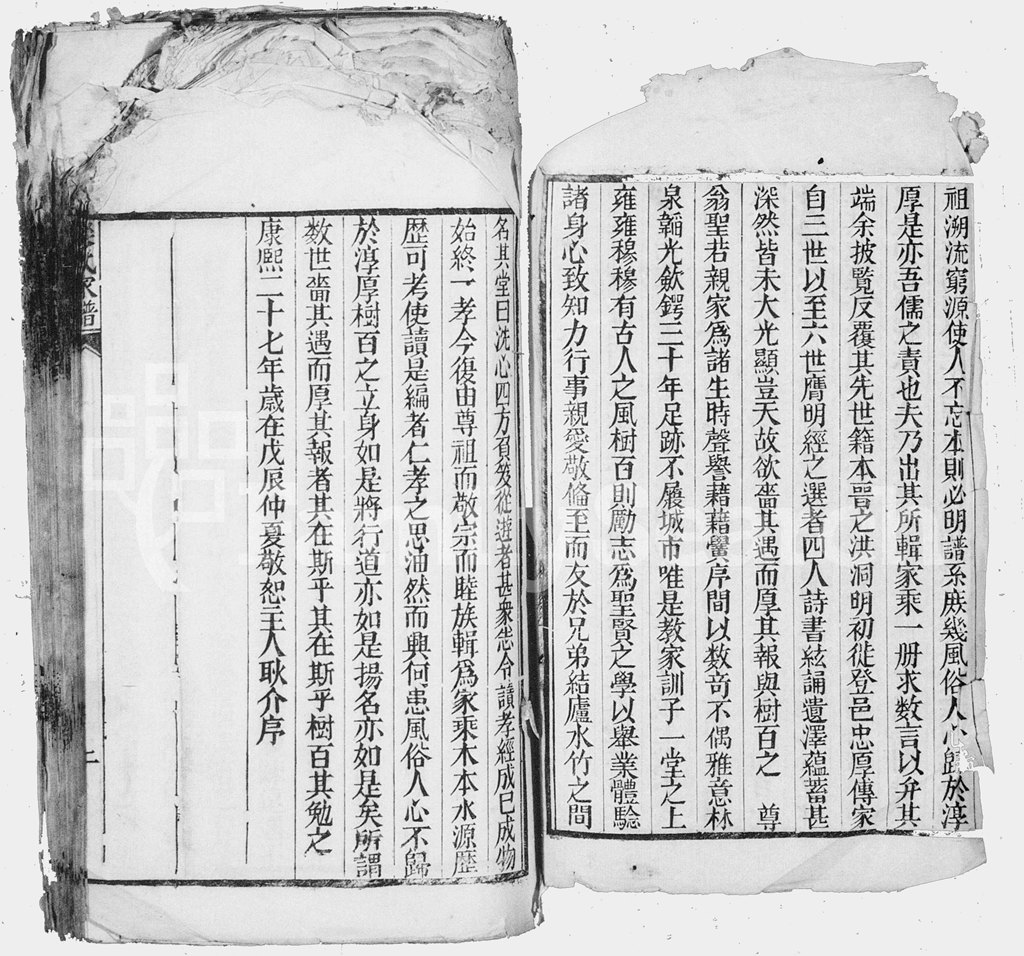 祖溯流窮源使人不忘本則必明譜系庻幾風俗人心歸於淳
厚是亦吾儒之責也夫乃出其所輯家乘一册求数言以弁其
端余披覧反覆其先世籍本晉之洪洞明初徙登邑忠厚傳家
自三世以至六世膺明經之選者四人詩書絃誦遺澤蘊蓄甚
深然皆未大光顯豈天故欲嗇其遇而厚其報與樹百之 尊
翁聖若親家爲諸生時聲譽藉藉黌序間以数奇不偶雅意林
泉韜光歛鍔三十年足跡不履城市唯是教家訓子一堂之上
雍雍穆穆有古人之風樹百則勵志爲聖賢之學以舉業體驗
諸身心致知力行事親愛敬俻至而友於兄弟結廬水竹之間
名其堂曰洗心四方負笈從遊者甚衆恙令讀孝經成巳成物
始終一孝今復由尊祖而敬宗而睦族輯爲家乘木本水源歷
歴可考使讀是編者仁孝之思油然而興何患風俗人心不歸
於淳厚樹百之立身如是將行道亦如是揚名亦如是矣所謂
数世嗇其遇而厚其報者其在斯乎其在斯乎樹百其勉之
康熙二十七年歳在戊辰仲夏敬恕主人耿介序
氏家譜
二